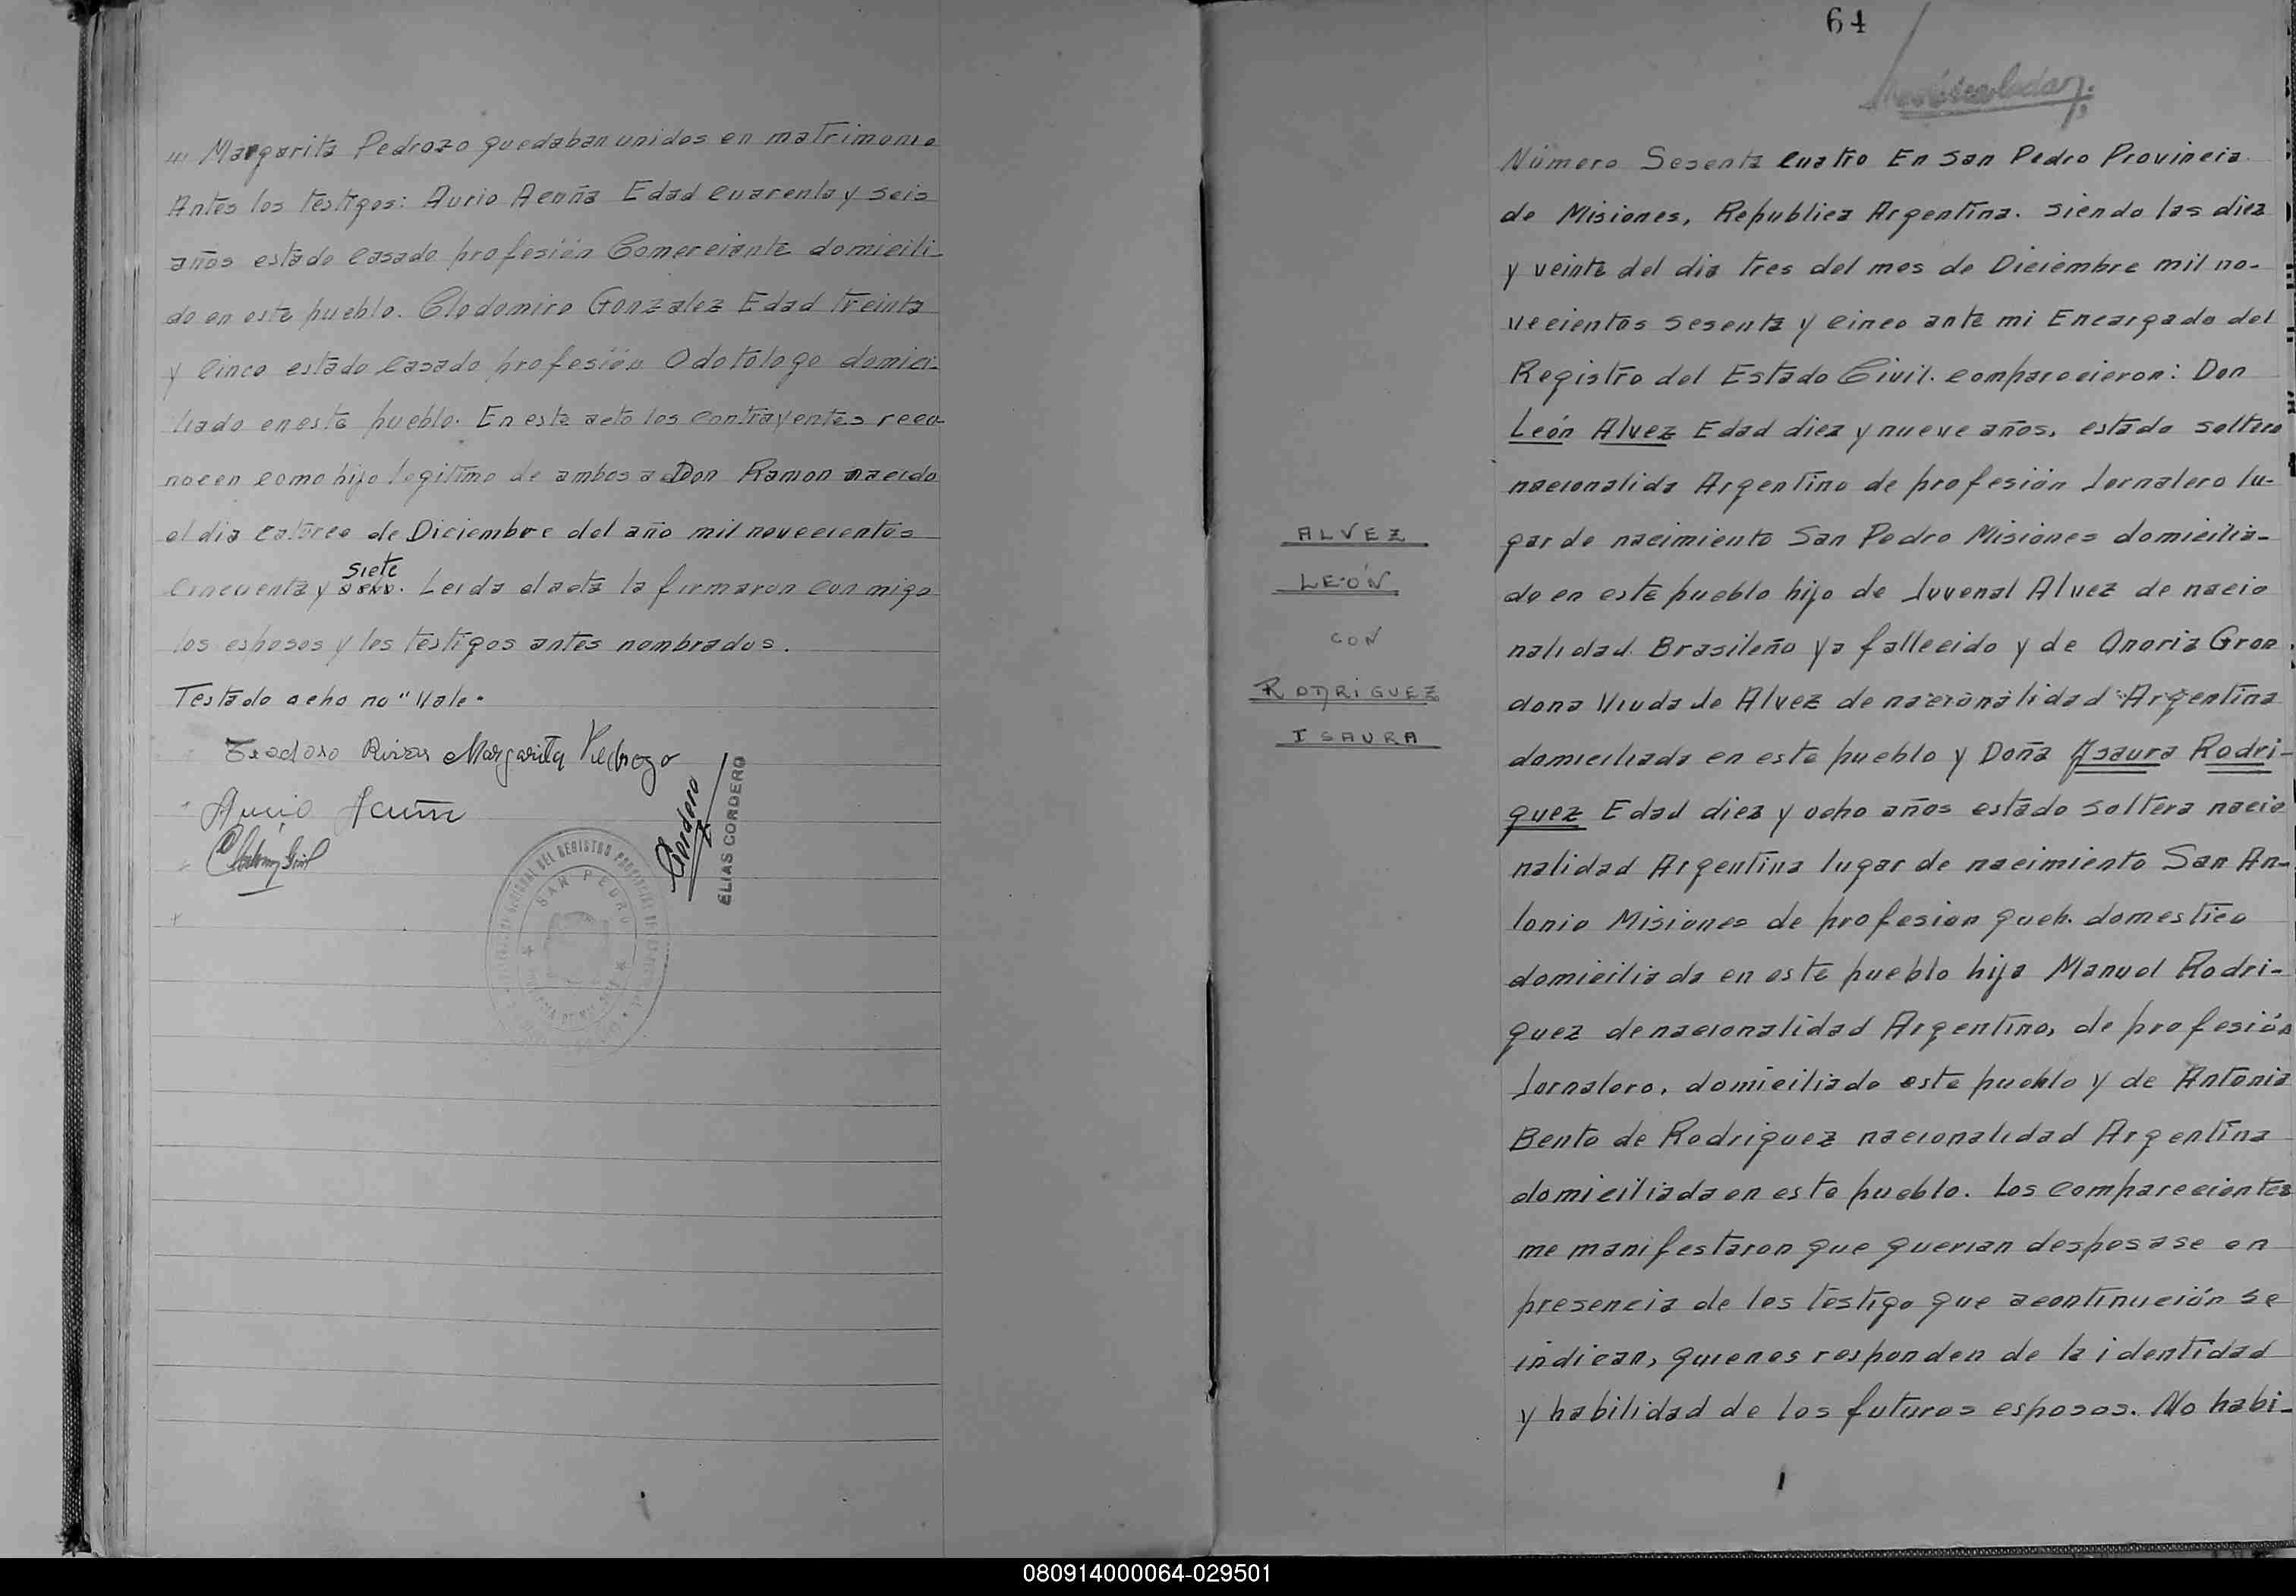 Margarita Pedrozo quedaban unidos en matrimonio
Antes los testigos: Aurio Acuña Edad Cuarenta y seis
años estado Casado profesión Comerciante domicili-
do en este pueblo. Clodomiro Gonzalez Edad treinta
y Cinco estado Casado profesión Odotologo domici-
liado en este pueblo. En este acto los Contrayentes reco-
nocen como hijo legitimo de ambos a Don Ramon nacido
el dia catorce de Diciembre del año mil novecientos
siete
Cincuenta y ocho. Leida el acta la firmaron Con migo
los esposos y los testigos antes nombrados.
Testado ocho no "Vale.
Teodoso Rivas Margarita Pedrozo
Aurio Acuña
Cordero
ELIAS CORDERO
SAN PEDRO
64
Número Sesenta Cuatro En San Pedro Provincia
de Misiones, Republica Argentina. siendo las diez
y veinte del dia tres del mes de Diciembre mil no-
vecientos sesenta y Cinco ante mi Encargado del
Registro del Estado Civil. comparecieron: Don
León Alvez Edad diez y nueve años, estado soltero
nacionalida Argentino de profesión Jornalero lu-
gar de nacimiento San Pedro Misiones domicilia-
do en este pueblo hijo de Juvenal Alvez de nacio
nalidad Brasileño ya fallecido y de Onoria Gron
dona Viuda de Alvez de nacionalidad Argentina
domiciliada en este pueblo y Doña Ysaura Rodri-
guez Edad diez y ocho años estado soltera nacio
nalidad Argentina lugar de nacimiento San An-
tonio Misiones de profesion queh. domestico
domiciliada en este pueblo hija Manuel Rodri-
guez de nacionalidad Argentino, de profesión
Jornalero, domiciliado este pueblo y de Antonia
Bento de Rodriguez nacionalidad Argentina
domiciliada en este pueblo. Los comparecientes
me manifestaron que querian desposase en
presencia de los testigo que acontinución se
indican, quienes responden de la identidad
y habilidad de los futuros esposos. No habi-
ALVEZ
LEÓN
CON
RODRIGUEZ
ISAURA
080914000064-029501